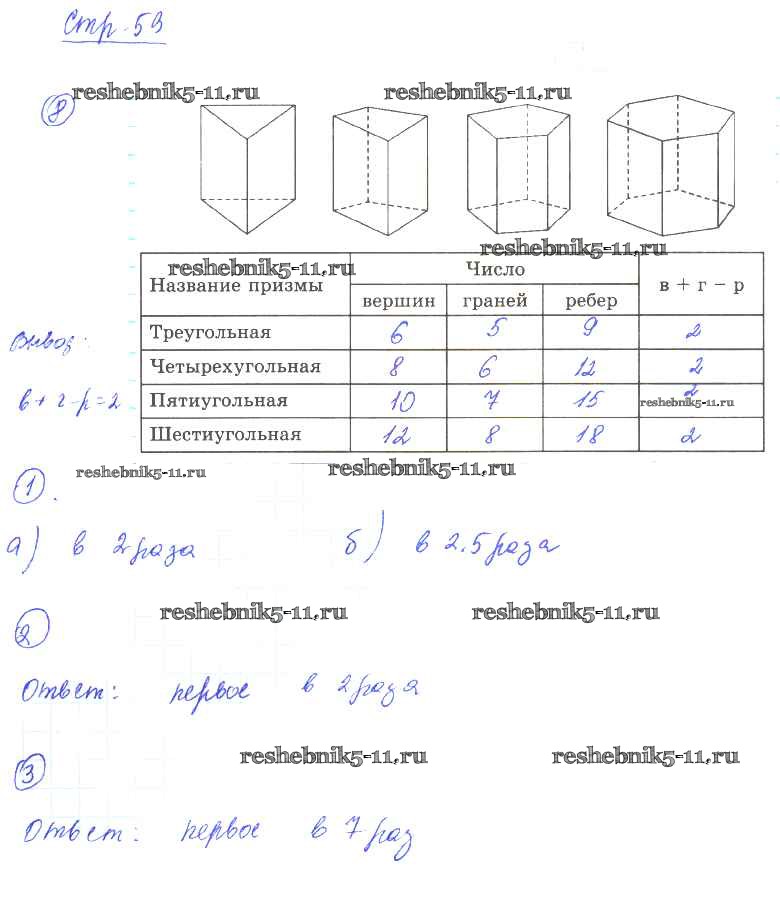 Стр. 59
reshebnik5-11.ru reshebnik5-11.ru
8
reshebnik5-11.ru
reshebnik5-11.ru
Название призмы Число в + г − р
вершин граней ребер
Треугольная 6 5 9 2
Вывод:
Четырехугольная 8 6 12 2
в + г − р = 2
Пятиугольная 10 7 15 2
reshebnik5-11.ru
Шестиугольная 12 8 18 2
reshebnik5-11.ru reshebnik5-11.ru
1.
а) в 2 раза б) в 2.5 раза
reshebnik5-11.ru reshebnik5-11.ru
2
Ответ: первое в 2 раза
reshebnik5-11.ru reshebnik5-11.ru
3
Ответ: первое в 7 раз